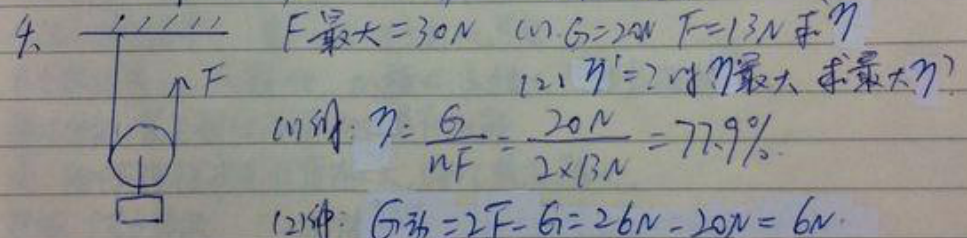 4、 F最大=30N (1).G=20N F=13N 求η
F
(2) η'=?时η最大 求最大η?
(1)解: η= G/nF = 20N/2×13N =77.9%.
(2)解: G动=2F-G=26N-20N=6N.